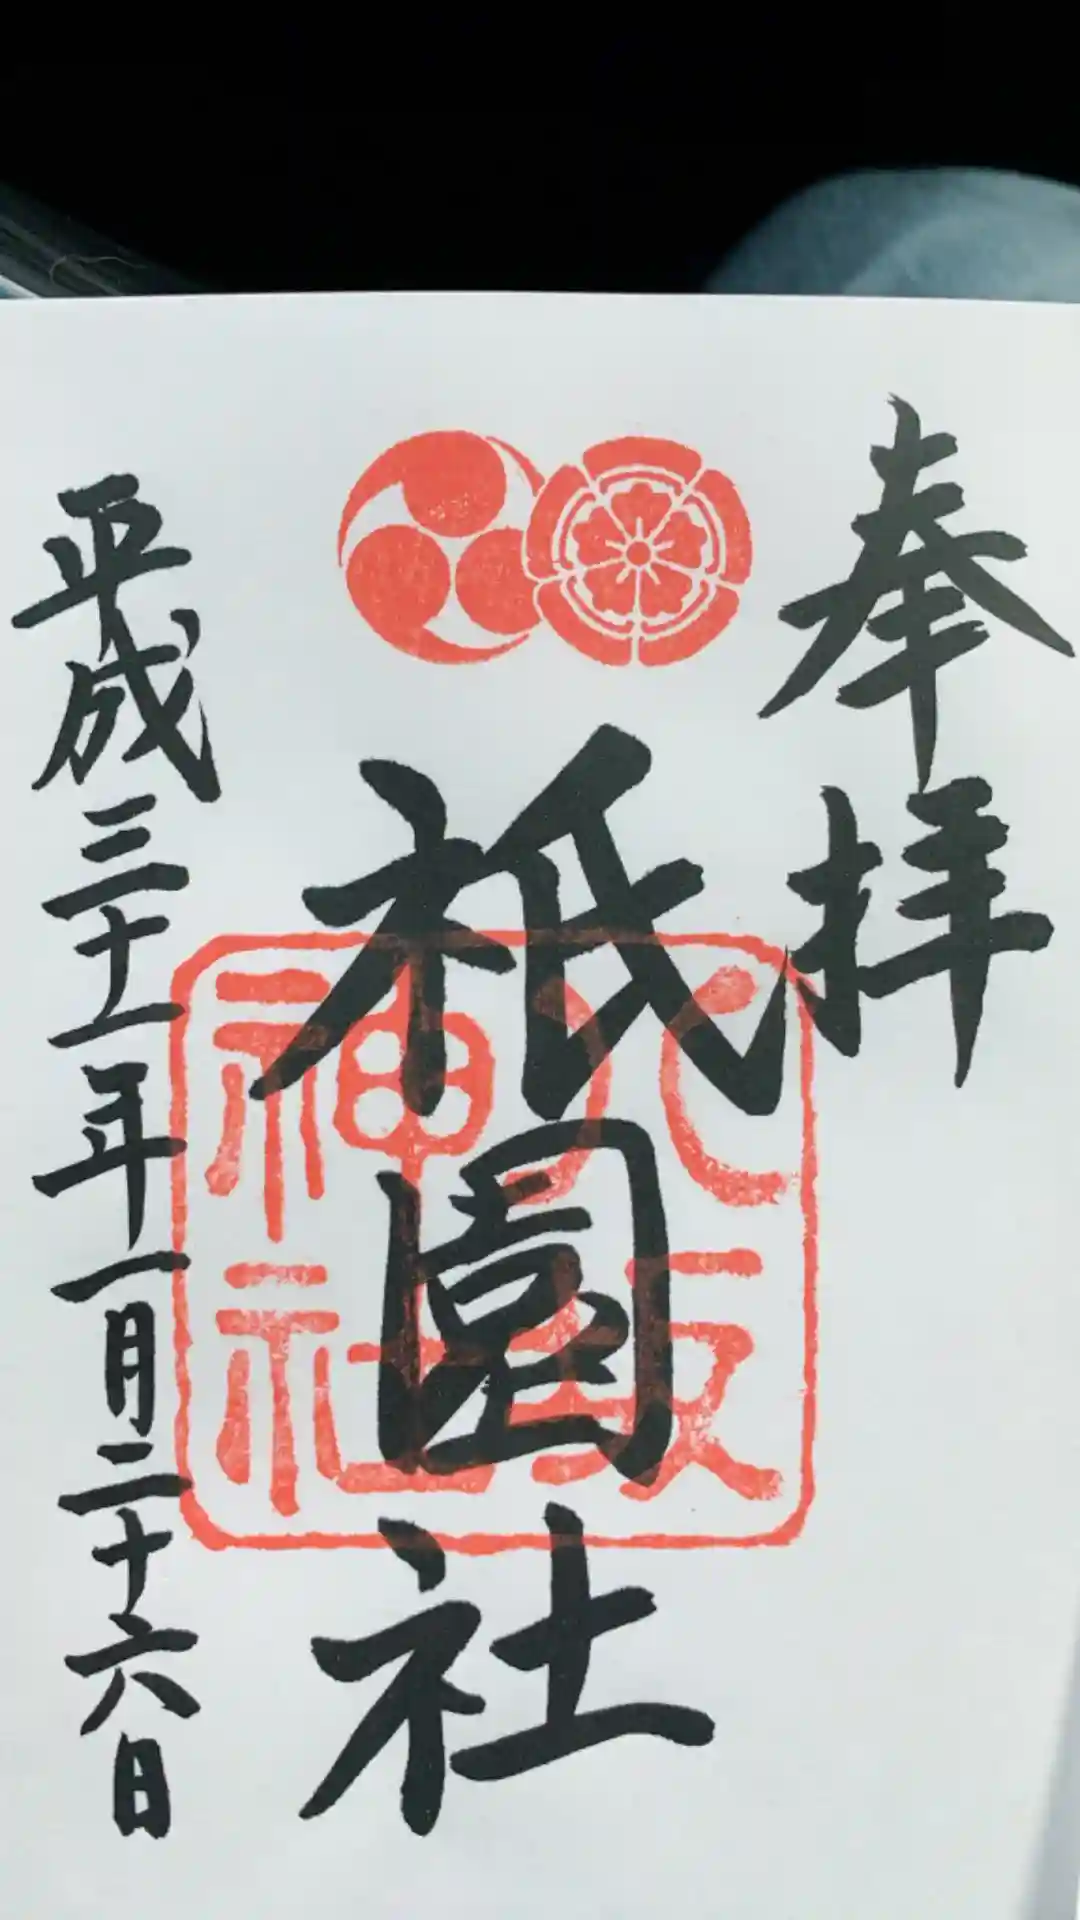 奉拝
祇園社
八坂神社
平成三十一年一月二十六日